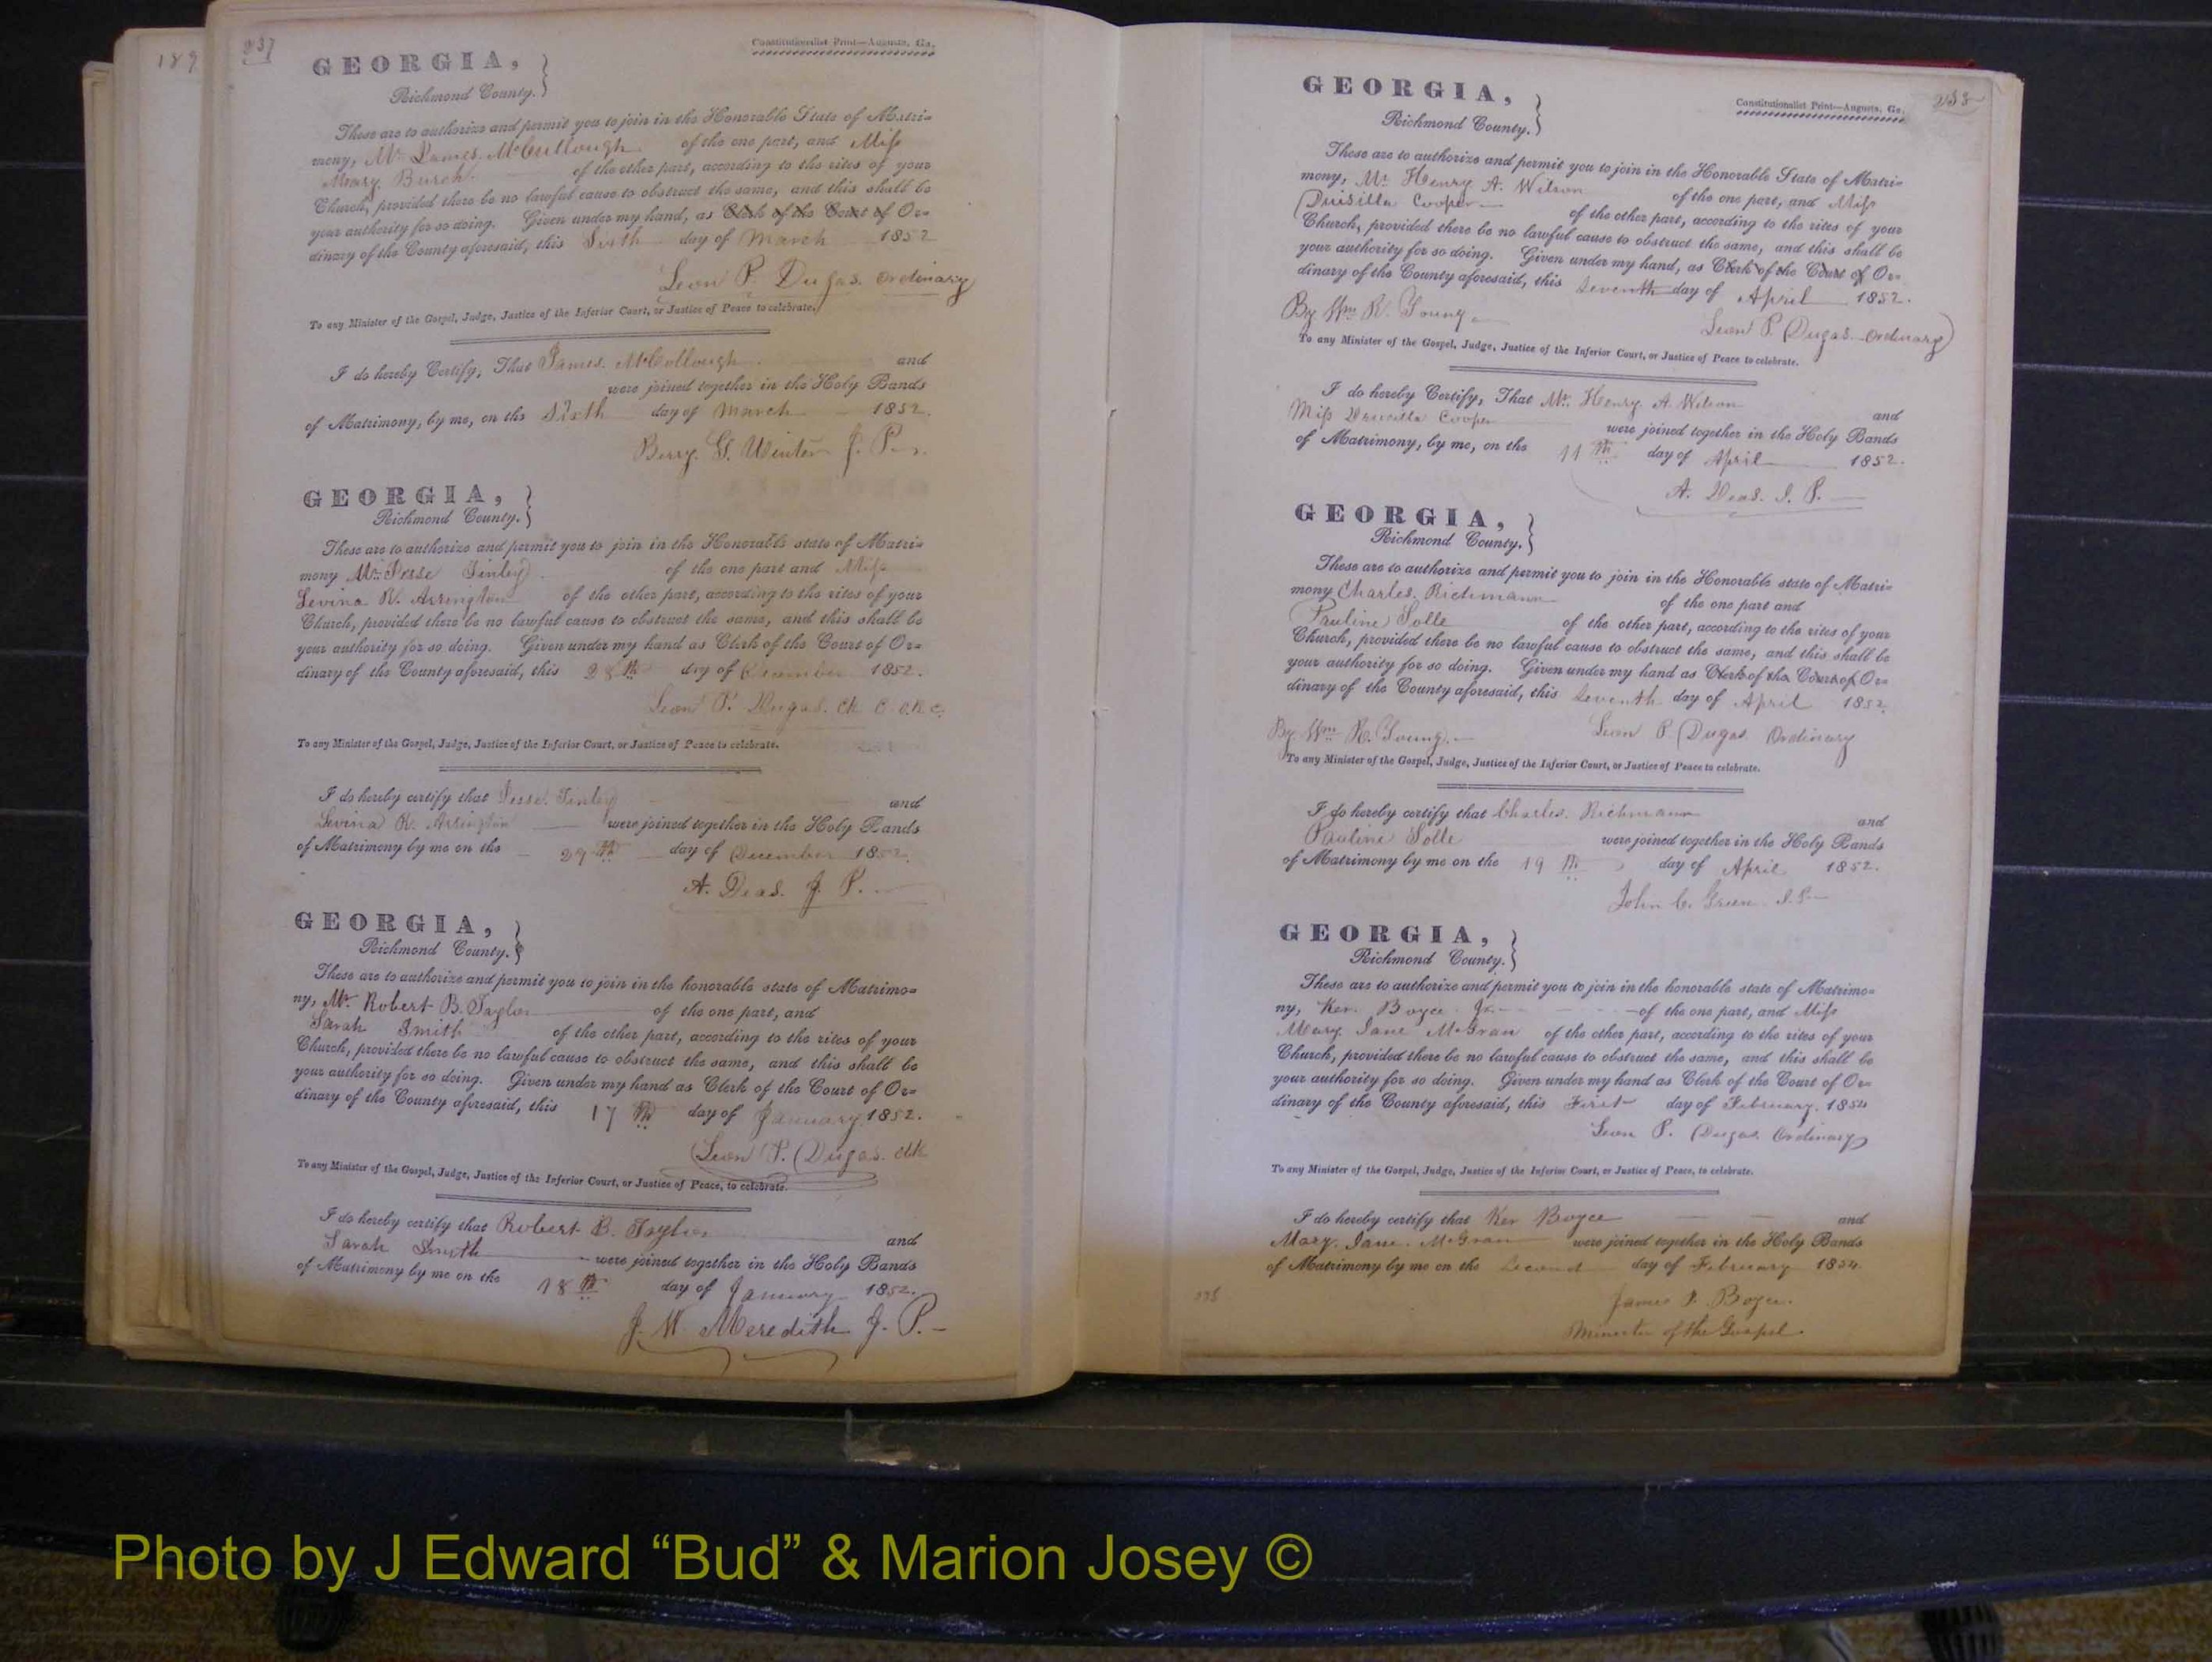 189
237
Constitutionalist Print—Augusta, Ga.
GEORGIA,
Richmond County.
These are to authorize and permit you to join in the Honorable State of Matri=
mony, Mr James McCullough of the one part, and Miss
Mary Burch of the other part, according to the rites of your
Church, provided there be no lawful cause to obstruct the same, and this shall be
your authority for so doing. Given under my hand, as Clerk of the Court of Or=
dinary of the County aforesaid, this Sixth day of March 1852
Leon P. Dugas. Ordinary
To any Minister of the Gospel, Judge, Justice of the Inferior Court, or Justice of Peace to celebrate.
I do hereby Certify, That James McCollough and
were joined together in the Holy Bands
of Matrimony, by me, on the Sixth day of March 1852.
Berry G. Winter J. P.
GEORGIA,
Richmond County.
These are to authorize and permit you to join in the Honorable state of Matri=
mony Mr. Jesse Finley of the one part and Miss
Levina R. Arrington of the other part, according to the rites of your
Church, provided there be no lawful cause to obstruct the same, and this shall be
your authority for so doing. Given under my hand as Clerk of the Court of Or=
dinary of the County aforesaid, this 28th day of December 1852.
Leon P. Dugas. Clk C.O.R.C.
To any Minister of the Gospel, Judge, Justice of the Inferior Court, or Justice of Peace to celebrate.
I do hereby certify that Jesse Finley and
Levina R. Arrington were joined together in the Holy Bands
of Matrimony by me on the 29th day of December 1852.
A. Deas. J. P.
GEORGIA,
Richmond County.
These are to authorize and permit you to join in the honorable state of Matrimo=
ny, Mr. Robert B. Taylor of the one part, and
Sarah Smith of the other part, according to the rites of your
Church, provided there be no lawful cause to obstruct the same, and this shall be
your authority for so doing. Given under my hand as Clerk of the Court of Or=
dinary of the County aforesaid, this 17th day of January 1852.
Leon P. Dugas. Clk
To any Minister of the Gospel, Judge, Justice of the Inferior Court, or Justice of Peace, to celebrate.
I do hereby certify that Robert B. Taylor and
Sarah Smith were joined together in the Holy Bands
of Matrimony by me on the 18th day of January 1852.
J. W. Meredith J. P.
Constitutionalist Print—Augusta, Ga.
238
GEORGIA,
Richmond County.
These are to authorize and permit you to join in the Honorable State of Matri=
mony, Mr. Henry A. Wilson of the one part, and Miss
Drusilla Cooper of the other part, according to the rites of your
Church, provided there be no lawful cause to obstruct the same, and this shall be
your authority for so doing. Given under my hand, as Clerk of the Court of Or=
dinary of the County aforesaid, this Seventh day of April 1852.
By Wm R. Young
Leon P. Dugas Ordinary
To any Minister of the Gospel, Judge, Justice of the Inferior Court, or Justice of Peace to celebrate.
I do hereby Certify, That Mr. Henry A. Wilson and
Miss Drucilla Cooper were joined together in the Holy Bands
of Matrimony, by me, on the 11th day of April 1852.
A. Deas. J. P.
GEORGIA,
Richmond County.
These are to authorize and permit you to join in the Honorable state of Matri=
mony Charles Richmann of the one part and
Pauline Solle of the other part, according to the rites of your
Church, provided there be no lawful cause to obstruct the same, and this shall be
your authority for so doing. Given under my hand as Clerk of the Court of Or=
dinary of the County aforesaid, this Seventh day of April 1852.
By Wm R. Young
Leon P. Dugas Ordinary
To any Minister of the Gospel, Judge, Justice of the Inferior Court, or Justice of Peace to celebrate.
I do hereby certify that Charles Richmann and
Pauline Solle were joined together in the Holy Bands
of Matrimony by me on the 19th day of April 1852.
John C. Green
GEORGIA,
Richmond County.
These are to authorize and permit you to join in the honorable state of Matrimo=
ny, Ker Boyce Jr. of the one part, and Miss
Mary Jane McGran of the other part, according to the rites of your
Church, provided there be no lawful cause to obstruct the same, and this shall be
your authority for so doing. Given under my hand as Clerk of the Court of Or=
dinary of the County aforesaid, this First day of February 1854
Leon P. Dugas Ordinary
To any Minister of the Gospel, Judge, Justice of the Inferior Court, or Justice of Peace, to celebrate.
I do hereby certify that Ker Boyce and
Mary Jane McGran were joined together in the Holy Bands
of Matrimony by me on the Second day of February 1854
James P. Boyce.
Minister of the Gospel.
Photo by J Edward “Bud” & Marion Josey ©